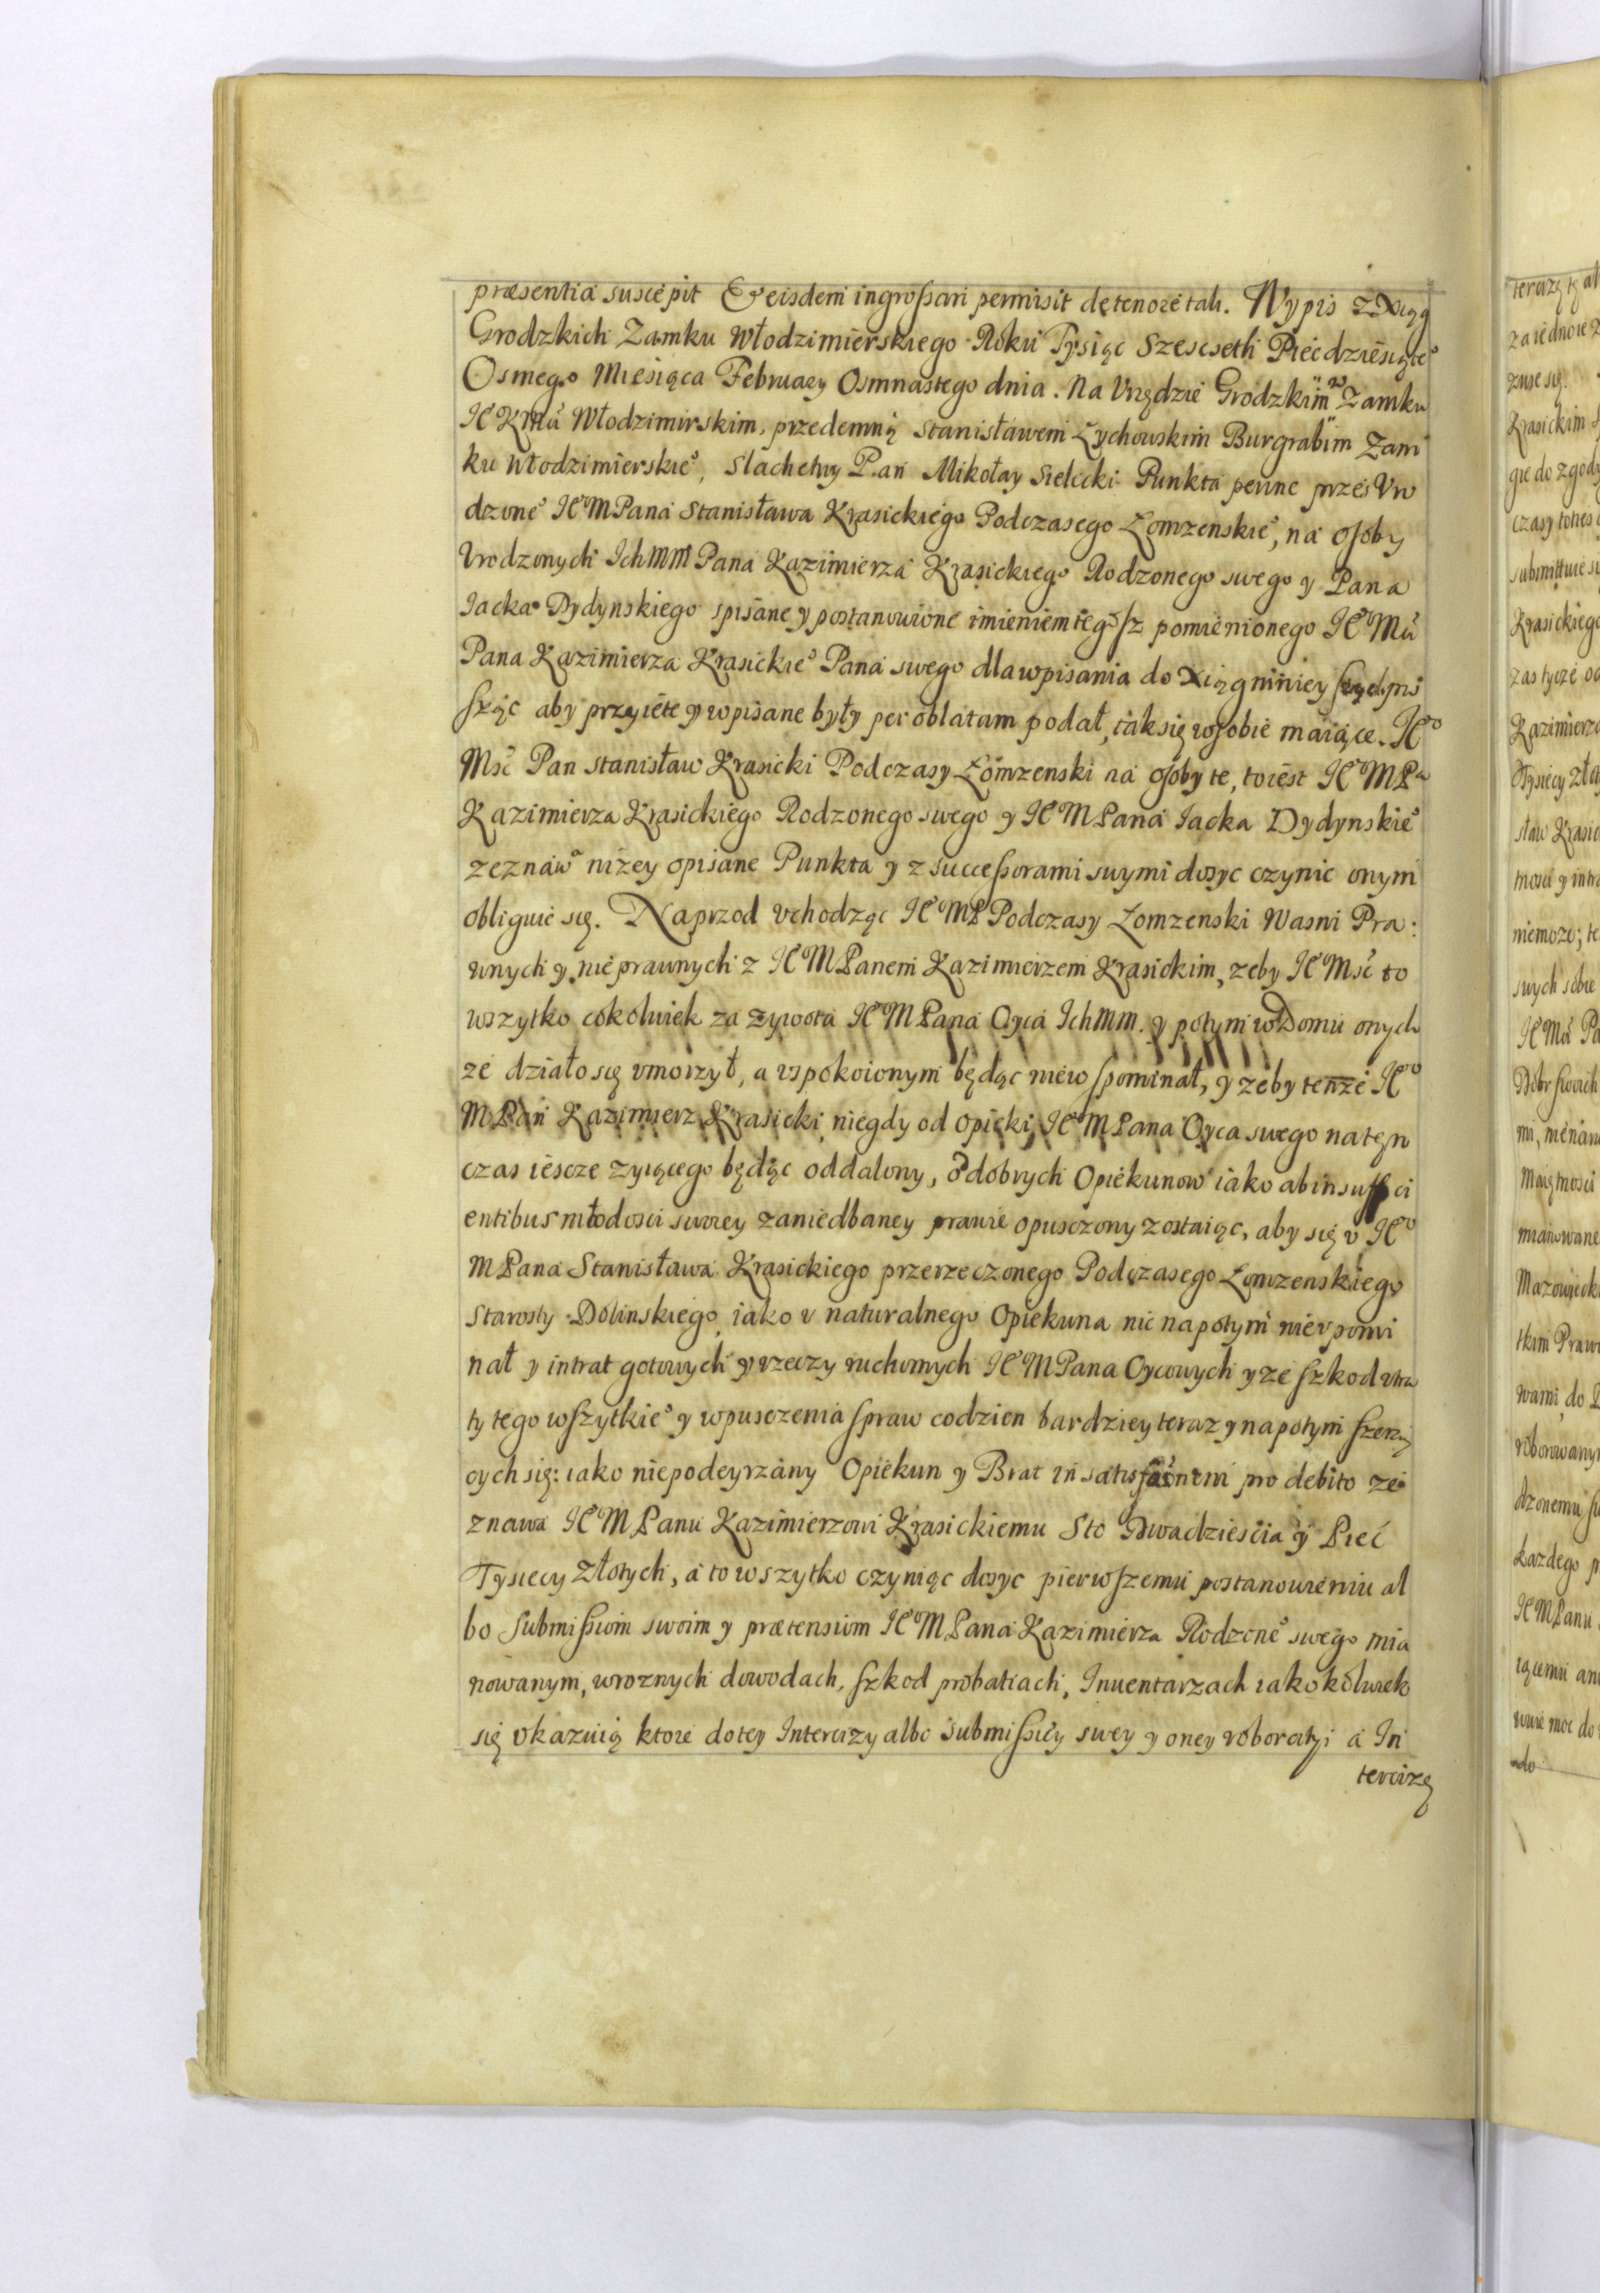 præsentia suscepit & eisdem ingrossari permisit de tenore tali. Wypis z Xiąg
Grodzkich Zamku Włodzimierskiego Roku Tysiąc Szescseth Piecdziesiąte°
Osmego Miesiąca February Osmnastego dnia. Na Vrzędzie Grodzkim w Zamku
IE° KMci Włodzimirskim, przedemną Stanisławem Łychowskim Burgrabim Zam
ku Włodzimierskie°, Slachetny Pan Mikołay Sielecki Punkta pewne przes Vro
dzone° IE° M Pana Stanisława Krasickiego Podczasego Łomzenskie°, na osoby
Vrodzonych Ich MM Pana Kazimierza Krasickiego Rodzonego swego y Pana
Iacka Dydynskiego spisane y postanowione imieniem tegosz pomienionego IE° Mci
Pana Kazimierza Krasickie° Pana swego dla wpisania do Xiąg niniey
sząc aby przyięte y wpisane były per oblatam podał, tak się w sobie maiące. IE°
Msc Pan Stanisław Krasicki Podczasy Łomzenski na osoby te, to iest IE° M Pa
Kazimierza Krasickiego Rodzonego swego y IE° M Pana Iacka Dydynskie°
zeznawa nizey opisane Punkta y z successorami swymi dosyc czynic onym
obliguie się. Naprzod vchodząc IE° MP Podczasy Łomzenski Wasni Pra:
wnych y nie prawnych z IE° M Panem Kazimierzem Krasickim, zeby IE° Msc to
wszytko cokolwiek za zywota IE° M Pana Oyca Ich MM. y potym w Domu onych
ze działo się vmorzył, a vspokoionym będąc nie wspominał, y zeby tenze IE°
M Pan Kazimierz Krasicki, niegdy od opieki IE° M Pana Oyca swego na ten
czas iescze zyiącego będąc oddalony, od dobrych Opiekunow iako ab insuffici
entibus młodosci swoiey zaniedbaney prawie opusczony zostaiąc, aby się v IE°
M Pana Stanisława Krasickiego przerzeczonego Podczasego Łomzenskiego
Starosty Dolinskiego, iako v naturalnego Opiekuna nic napotym nie vpomi
nał y intrat gotowych y rzeczy ruchomych IE° M Pana Oycowych y ze szkod vtra
ty tego wszytkie° y wpusczenia spraw codzien bardziey teraz y napotym szerzą
cych się: iako niepodeyrzany Opiekun y Brat in satisfactnem pro debito ze
znawa IE° M Panu Kazimierzowi Krasickiemu Sto Dwadziescia y Pięć
Tysiecy Złotych, a to wszytko czyniąc dosyc pierwszemu postanowieniu al
bo submissiom swoim y prætensiom IE° M Pana Kazimierza Rodzone° swego mia
nowanym, w roznych dowodach, szkod probatiach, Inventarzach iakokolwiek
się vkazuią ktore do tey Intercizy albo submissiey swey y oney roboratyi a In
tercizę